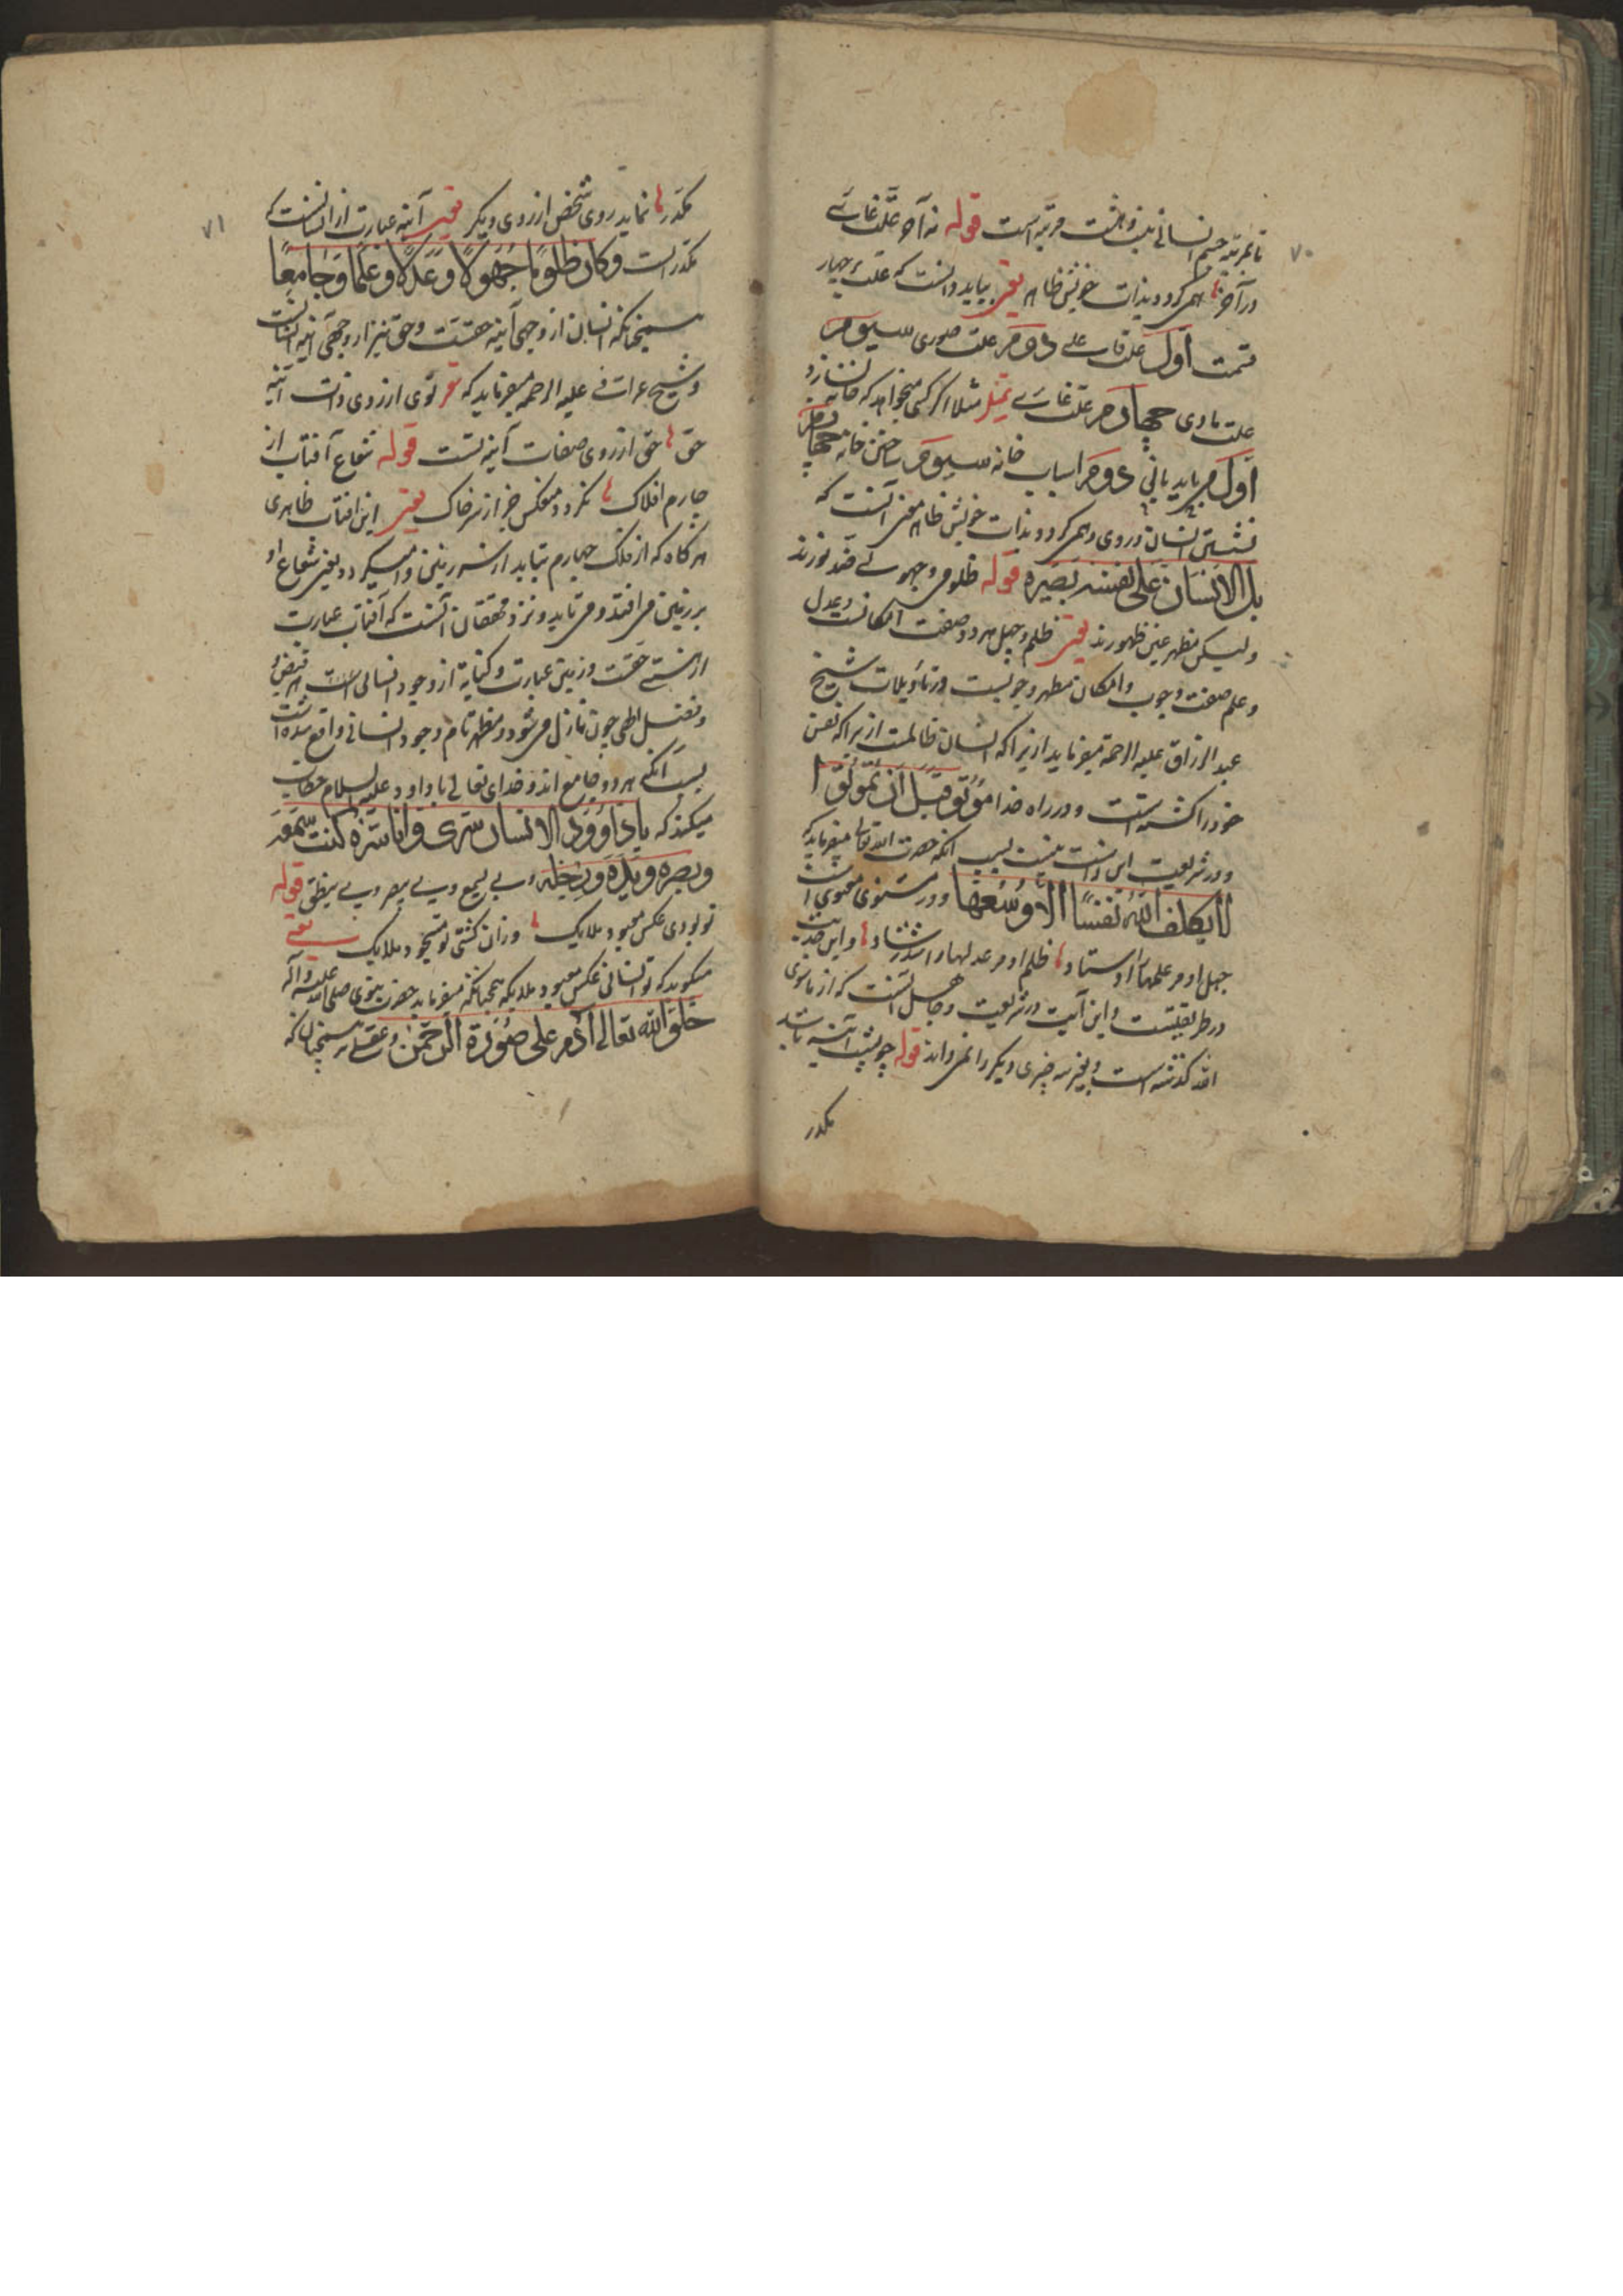 ۷۰
تا بمرتبه جسم انسانی بیند و هشت مرتبه است قوله نه آخر علّت غائے
در آخر همی گردد بذات خویش ظاهر یعنی بباید دانست که علت بر چهار
قسمت اول علت فاعلے دوم علت صوری سیوم
علت مادی چهارم علت غائے تمثیل مثلا اگر کسی میخواهد که خانه بسازد
اول مرباید بانی دوم اسباب خانه سیوم ساختن خانه چهارم
نشستن انسان در وی و همی گردد بذات خویش ظاهر معنی آنست که
بل الانسان علی نفسه بصیره قوله ظلومی و جهولے ضد نورند
ولیکن مظهر عین ظهورند یعنی ظلم و جهل هر دو صفت امکانست و عدل
و علم صفت وجوب و امکان مظهر وجوبست و در تاویلات شیخ
عبد الرزاق علیه الرحمة میفرماید ازیرا که انسان ظالمست ازیرا که نفس
خود را کشته است و در راه خدا موتوا قبل ان تموتوا
و در شریعت این راست نیست بسبب آنکه حضرت الله تعالی میفرماید که
لا یکلف الله نفسا الا وسعها و در مثنوی معنوی است
جهل او مر علمها را اوستاد ظلم او مر عدلها را شد رشاد و این حدیث
در طریقتست و این آیت در شریعت و جاهل آنست که از ماسوی
الله گذشته است و بغیر چیزی دیگر را نمی داند قوله چو پشت آینه باشد
مکدر
۷۱
مکدر نماید روی شخص از روی دیگر یعنی آینه عبارت از انسانست که
مکدر است و کان ظلوما جهولا و عدلا و علما و جامعا
همچنانکه انسان از وجهی آینه حقست و حق نیز از وجهی آینه انسانست
و شیخ عراقے علیه الرحمه میفرماید که شعر توی از روی ذات آینه
حق حق از روی صفات آینه تست قوله شعاع آفتاب از
چارم افلاک نگردد منعکس جز از سر خاک یعنی این افتاب ظاهری
هرگاه که از فلک چهارم بتابد از سر زمین وا میگردد یعنی شعاع او
بر زمین می افتد و می تابد و نزد محققان آنست که آفتاب عبارت
از هستے حقست و زمین عبارت و کنایه از وجود انسانی است هر فیض
و فضل الهی چون نازل می شود و مظهر تام وجود انسانی واقع شده است
بسبب آنکه هر دو جامع اند و خدای تعالی با داود علیه السلام خطاب
میکند که یا داود الانسان سری و انا سره کنت سمعه
و بصره و یده و رجله و بے یسمع و بے یبصر و بے ینطق قوله
تو بودی عکس معبود ملایک از آن گشتی تو مسجود ملایک یعنے
میگوید که تو انسانی عکس معبود ملایکه همچنانکه میفرماید حضرت نبوی صلی الله علیه و آله
خلق الله تعالی آدم علی صورة الرحمن و عقلے همچنان که